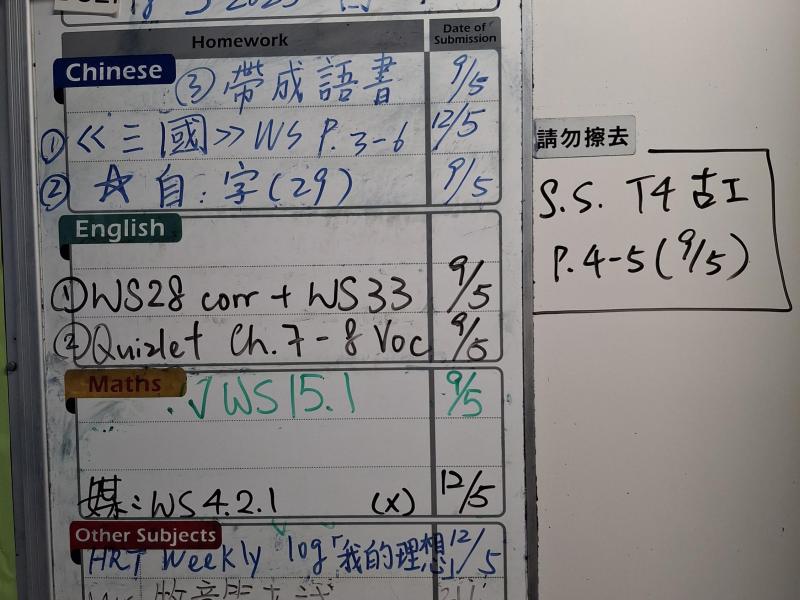 Homework Date of Submission
Chinese ③ 帶成語書 9/5
① 《三國》WS P. 3-6 12/5
② ☆ 自:字(29) 9/5
English
① WS28 corr + WS33 9/5
② Quizlet Ch. 7-8 Voc 9/5
Maths
√ WS15.1 9/5
媒: WS 4.2.1 (x) 12/5
Other Subjects
HRT Weekly log「我的理想」12/5
請勿擦去
S.S. T4 古工
P. 4-5 (9/5)